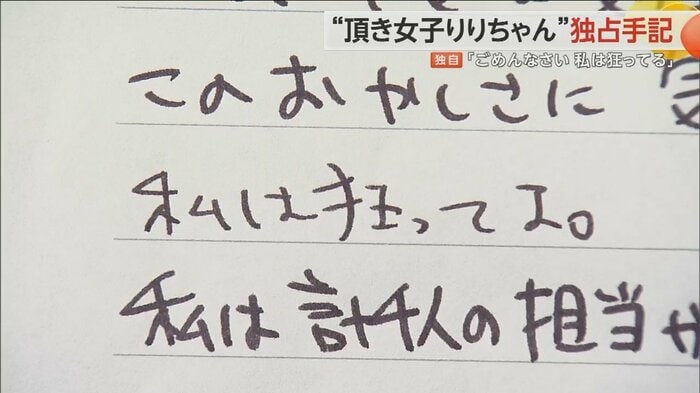 “頂き女子りりちゃん”独占手記
独自 「ごめんなさい 私は狂ってる」
このおかしさに
私は狂ってエ。
私は計4人の担当